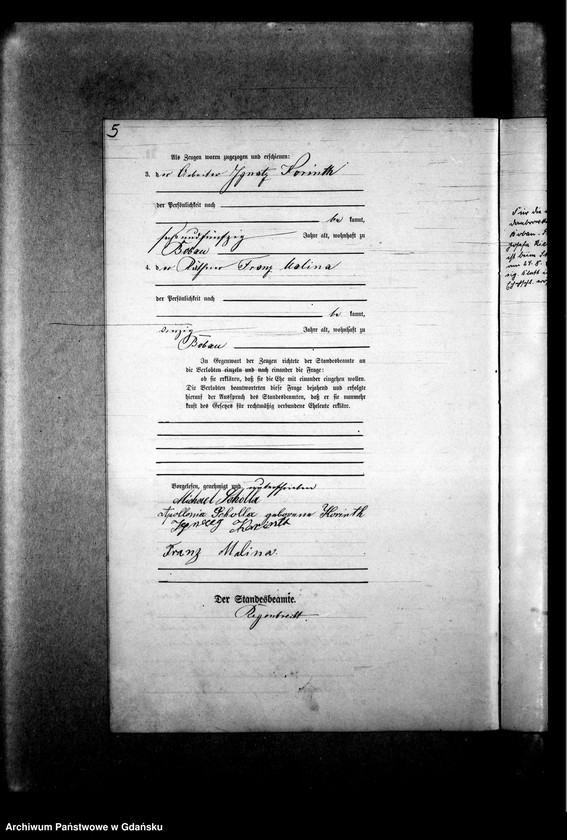 5
Als Zeugen waren zugezogen und erschienen:
3. der Arbeiter Ignatz Korinth
der Persönlichkeit nach
be kannt,
Jahre alt, wohnhaft zu
Bobau
4. der Käthner Franz Malina
der Persönlichkeit nach
be kannt,
Jahre alt, wohnhaft zu
Bobau
In Gegenwart der Zeugen richtete der Standesbeamte an
die Verlobten einzeln und nach einander die Frage:
ob sie erklären, daß sie die Ehe mit einander eingehen wollen.
Die Verlobten beantworteten diese Frage bejahend und erfolgte
hierauf der Ausspruch des Standesbeamten, daß er sie nunmehr
kraft des Gesetzes für rechtmäßig verbundene Eheleute erkläre.
Vorgelesen, genehmigt und unterschrieben
Michael Scholla
Apollonia Scholla geborene Korinth
Ignacy Korinth
Franz Malina
Der Standesbeamte.
Regenbrecht.
Für die
Archiwum Państwowe w Gdańsku